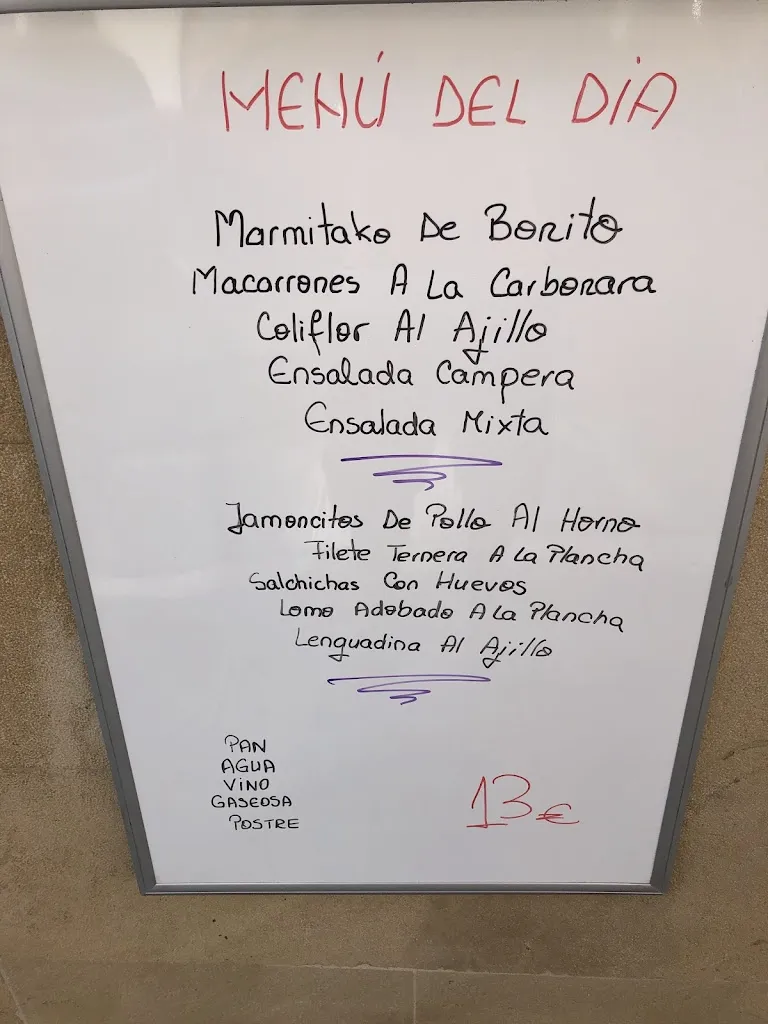 MENÚ DEL DÍA
Marmitako De Bonito
Macarrones A La Carbonara
Coliflor Al Ajillo
Ensalada Campera
Ensalada Mixta
Jamoncitos De Pollo Al Horno
Filete Ternera A La Plancha
Salchichas Con Huevos
Lomo Adobado A La Plancha
Lenguadina Al Ajillo
PAN
AGUA
VINO
GASEOSA
POSTRE
13€